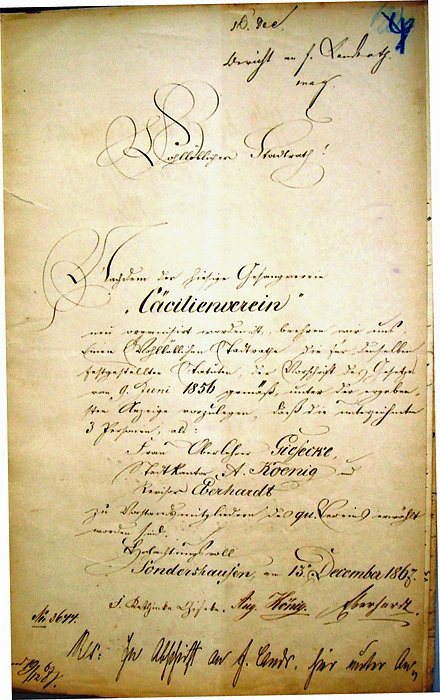 16. Dec.
Bericht an f. Landrath.
Wohllöblicher Stadtrath!
Nachdem der hiesige Gesangverein
„Cäcilienverein"
neu organisirt worden ist, beehren wir uns
Einem Wohllöblichen Stadtrathe die für denselben
festgestellten Statuten, der Vorschrift des Gesetzes
vom 9. Juni 1856 gemäß, unter der ergeben-
sten Anzeige vorzulegen, daß die unterzeichneten
3 Personen, als:
Frau Oberlehrer Giesecke,
Stadtkantor A. Koenig und
Revisor Eberhardt
zu Vorstandsmitgliedern des qu. Vereins erwählt
worden sind.
Hochachtungsvoll
Sondershausen, am 13. December 1867.
Giesecke. Aug. König. Eberhardt.
No 3644.
Res: In Abschrift an f. Landr. hier unter